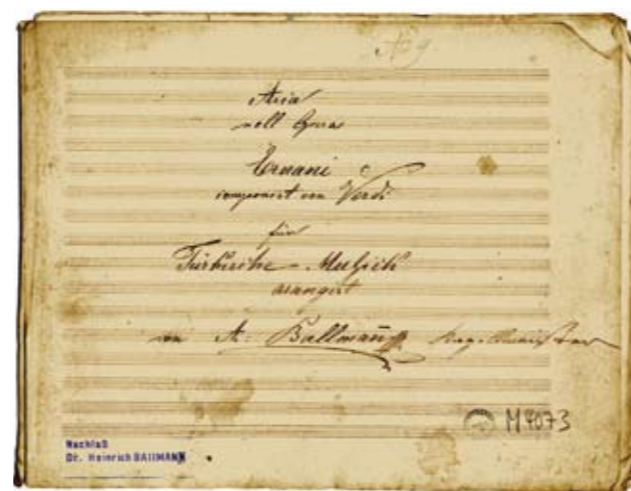 No 9
Aria
nell Opera
Ernani
componirt von Verdi
für
Türkische - Musick
arangirt
von A. Ballmann Kapellmeister
M 4073
Nachlaß
Dr. Heinrich BALLMANN